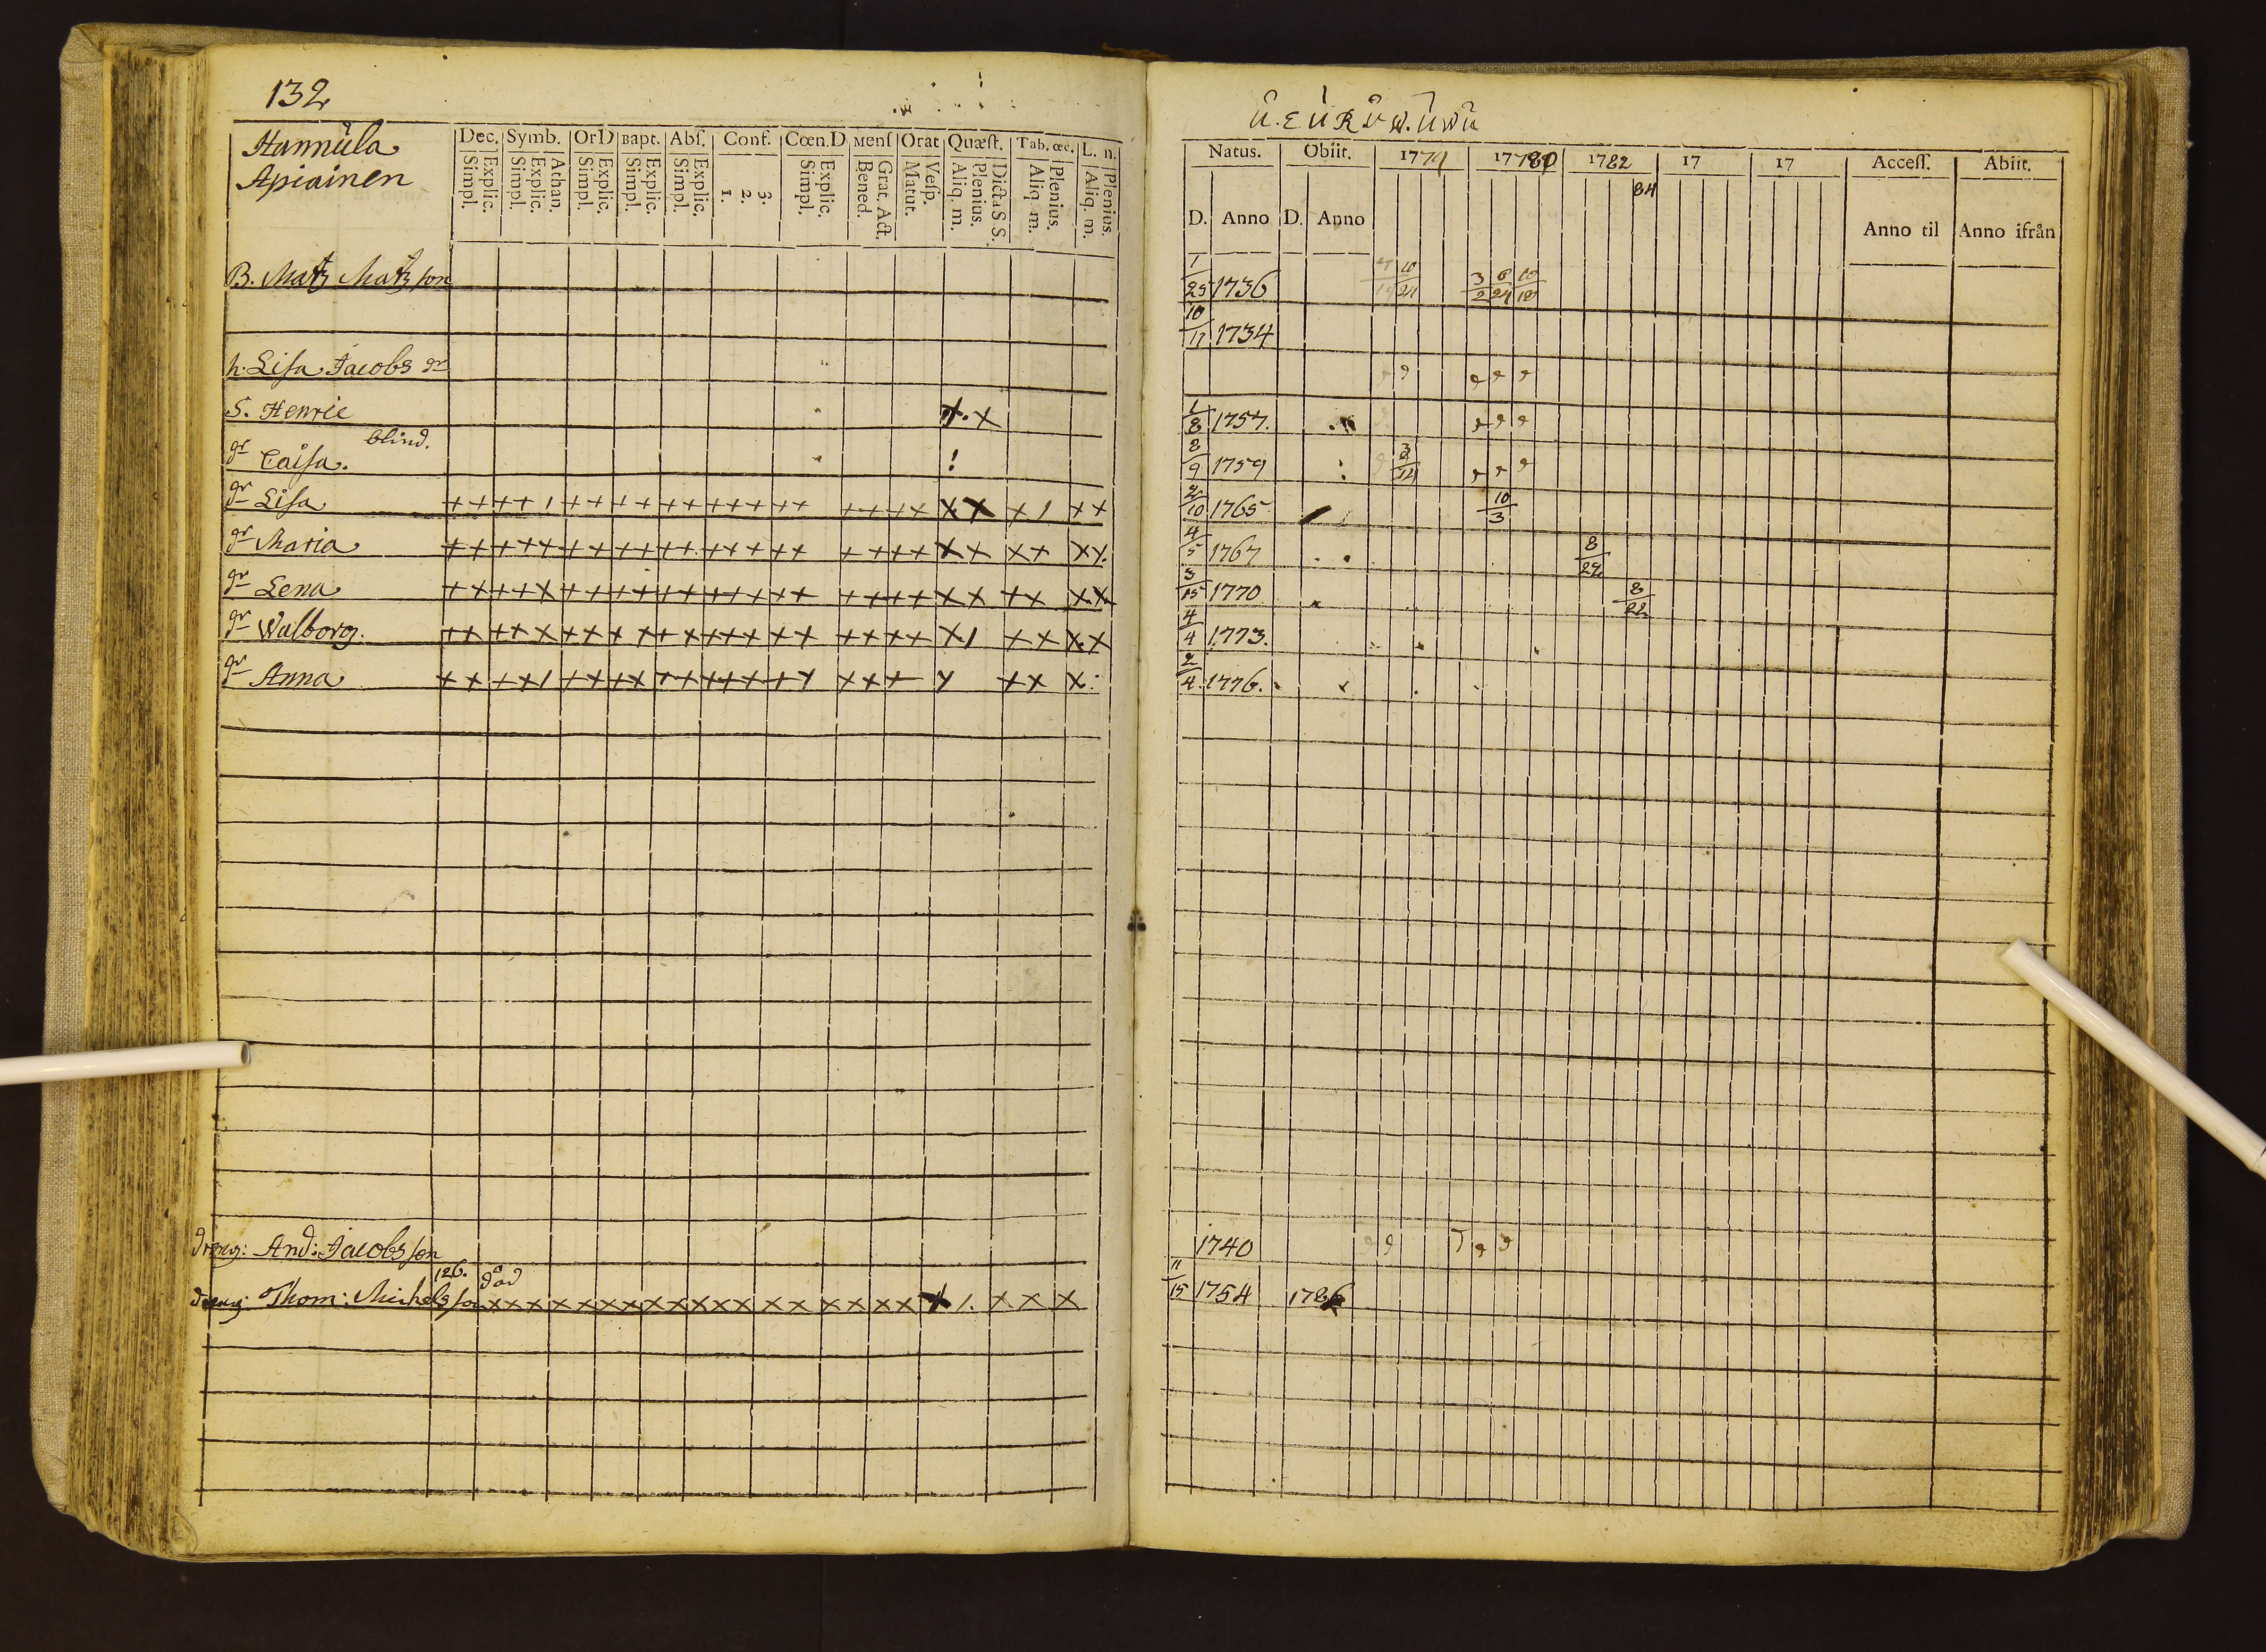 132
Hannula
Apiainen
Dec. Symb. OrD Bapt. Abſ. Conf. Cœn.D Menſ Orat Quæſt. Tab. œc. L. n.
Explic. Simpl. Athan. Explic. Simpl. Explic. Simpl. Explic. Simpl. Explic. Simpl. 3. 2. 1. Explic. Simpl. Grat. Act. Bened. Veſp. Matut. Dicta S. S. Plenius. Aliq. m. Plenius. Aliq. m. Plenius. Aliq. m.
B. Matz Matzson
h: Lisa Jacobs dr
S. Henric
blind.
dr Caisa.
dr Lisa + + + + 1 + + + + + + + + + + + + + + + x x x 1 x x
dr Maria
dr Lena
dr Walborg.
dr Anna
dreng: And: Jacobsson
126. död
dreng: Thom: Michelsson
Natus. Obiit. 1779 1780 1782 17 17 Acceſſ. Abiit.
84
D. Anno D. Anno Anno til Anno ifrån
1/25 1736 10/21 3/2 6/24 10/18
10/17 1734
1/8 1757.
8/9 1759 3/14
2/10 1765 10/3
4/5 1767 8/22
3/25 1770 8/22
4/4 1773.
2/4 1776.
1740
11/15 1754 1786